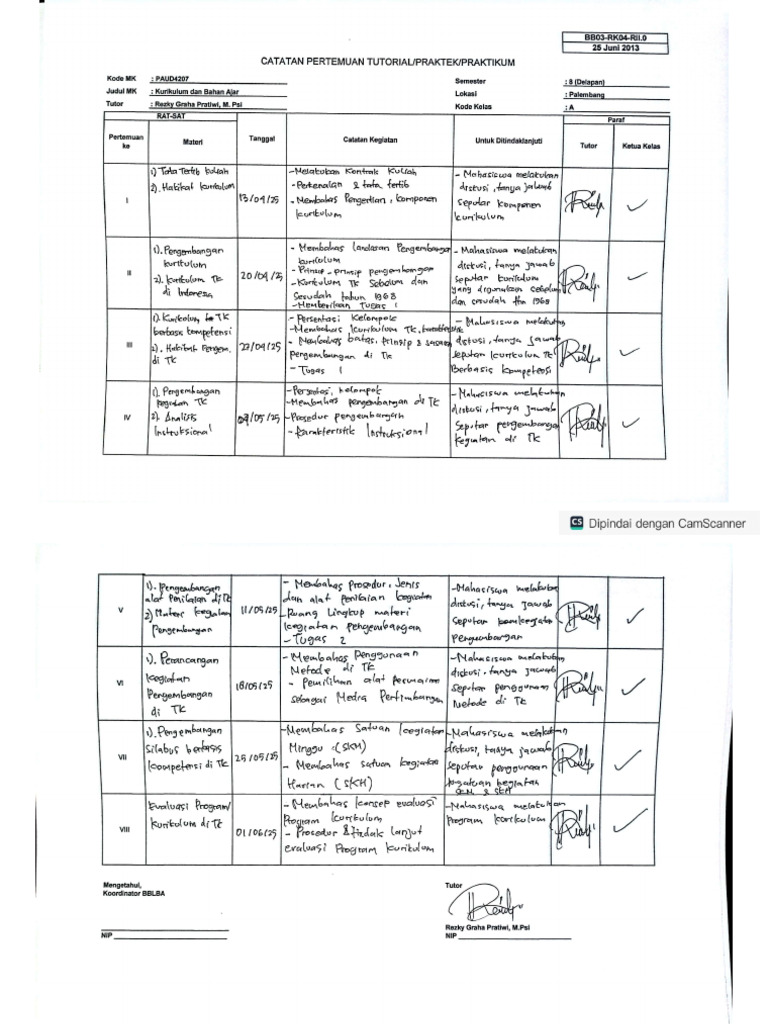 BB03-RK04-RII.0
25 Juni 2013
CATATAN PERTEMUAN TUTORIAL/PRAKTEK/PRAKTIKUM
Kode MK : PAUD4207
Judul MK : Kurikulum dan Bahan Ajar
Tutor : Rezky Graha Pratiwi, M. Psi
Semester : 8 (Delapan)
Lokasi : Palembang
Kode Kelas : A
RAT-SAT
Paraf
Pertemuan ke
Materi
Tanggal
Catatan Kegiatan
Untuk Ditindaklanjuti
Tutor
Ketua Kelas
I
1) Tata Tertib kuliah
2). Hakikat kurikulum
13/04/25
- Melakukan Kontrak Kuliah
- Perkenalan & tata tertib
- Membahas Pengertian, komponen
kurikulum
- Mahasiswa melakukan
diskusi, tanya jawab
seputar komponen
kurikulum
II
1). Pengembangan
kurikulum
2). kurikulum TK
di Indonesia
20/04/25
- Membahas landasan Pengembangan
kurikulum
- Prinsip-prinsip pengembangan
- Kurikulum TK Sebelum dan
Sesudah tahun 1968
- Memberikan Tugas 1
- Mahasiswa melakukan
diskusi, tanya jawab
seputar kurikulum
yang digunakan sebelum
dan sesudah thn 1968
III
1). Kurikulum TK
berbasis kompetensi
2). Hakikat Pengem.
di TK
27/04/25
- Persentasi Kelompok
- Membahas kurikulum TK,
- Membahas batas, prinsip &
pengembangan di TK
- Tugas 1
- Mahasiswa melakukan
diskusi, tanya jawab
seputar kurikulum TK
Berbasis kompetensi
IV
1). Pengembangan
kegiatan TK
2). Analisis
Instruksional
/05/25
- Persentasi kelompok
- Membahas pengembangan di TK
- Prosedur pengembangan
- Karakteristik Instruksional
- Mahasiswa melakukan
diskusi, tanya jawab
seputar pengembangan
kegiatan di TK
CS Dipindai dengan CamScanner
V
1). Pengembangan
alat Penilaian di TK
2) Materi kegiatan
Pengembangan
11/05/25
- Membahas Prosedur, Jenis
dan alat penilaian kegiatan
- Ruang Lingkup materi
kegiatan pengembangan
- Tugas 2
- Mahasiswa melakukan
diskusi, tanya jawab
seputar
pengembangan
VI
1). Perancangan
kegiatan
Pengembangan
di TK
18/05/25
- Membahas Penggunaan
Metode di TK
- Pemilihan alat permainan
sebagai Media Pertimbangan
- Mahasiswa melakukan
diskusi, tanya jawab
seputar penggunaan
Metode di TK
VII
1). Pengembangan
Silabus berbasis
kompetensi di TK
25/05/25
- Membahas Satuan kegiatan
Minggu (SKM)
- Membahas satuan kegiatan
Harian (SKH)
- Mahasiswa melakukan
diskusi, tanya jawab
seputar penggunaan
kegiatan
SKM & SKH
VIII
Evaluasi Program/
kurikulum di TK
01/06/25
- Membahas konsep evaluasi
Program kurikulum
- Prosedur & tindak lanjut
evaluasi Program kurikulum
- Mahasiswa melakukan
Program kurikulum
Mengetahui,
Koordinator BBLBA
NIP
Tutor
Rezky Graha Pratiwi, M.Psi
NIP